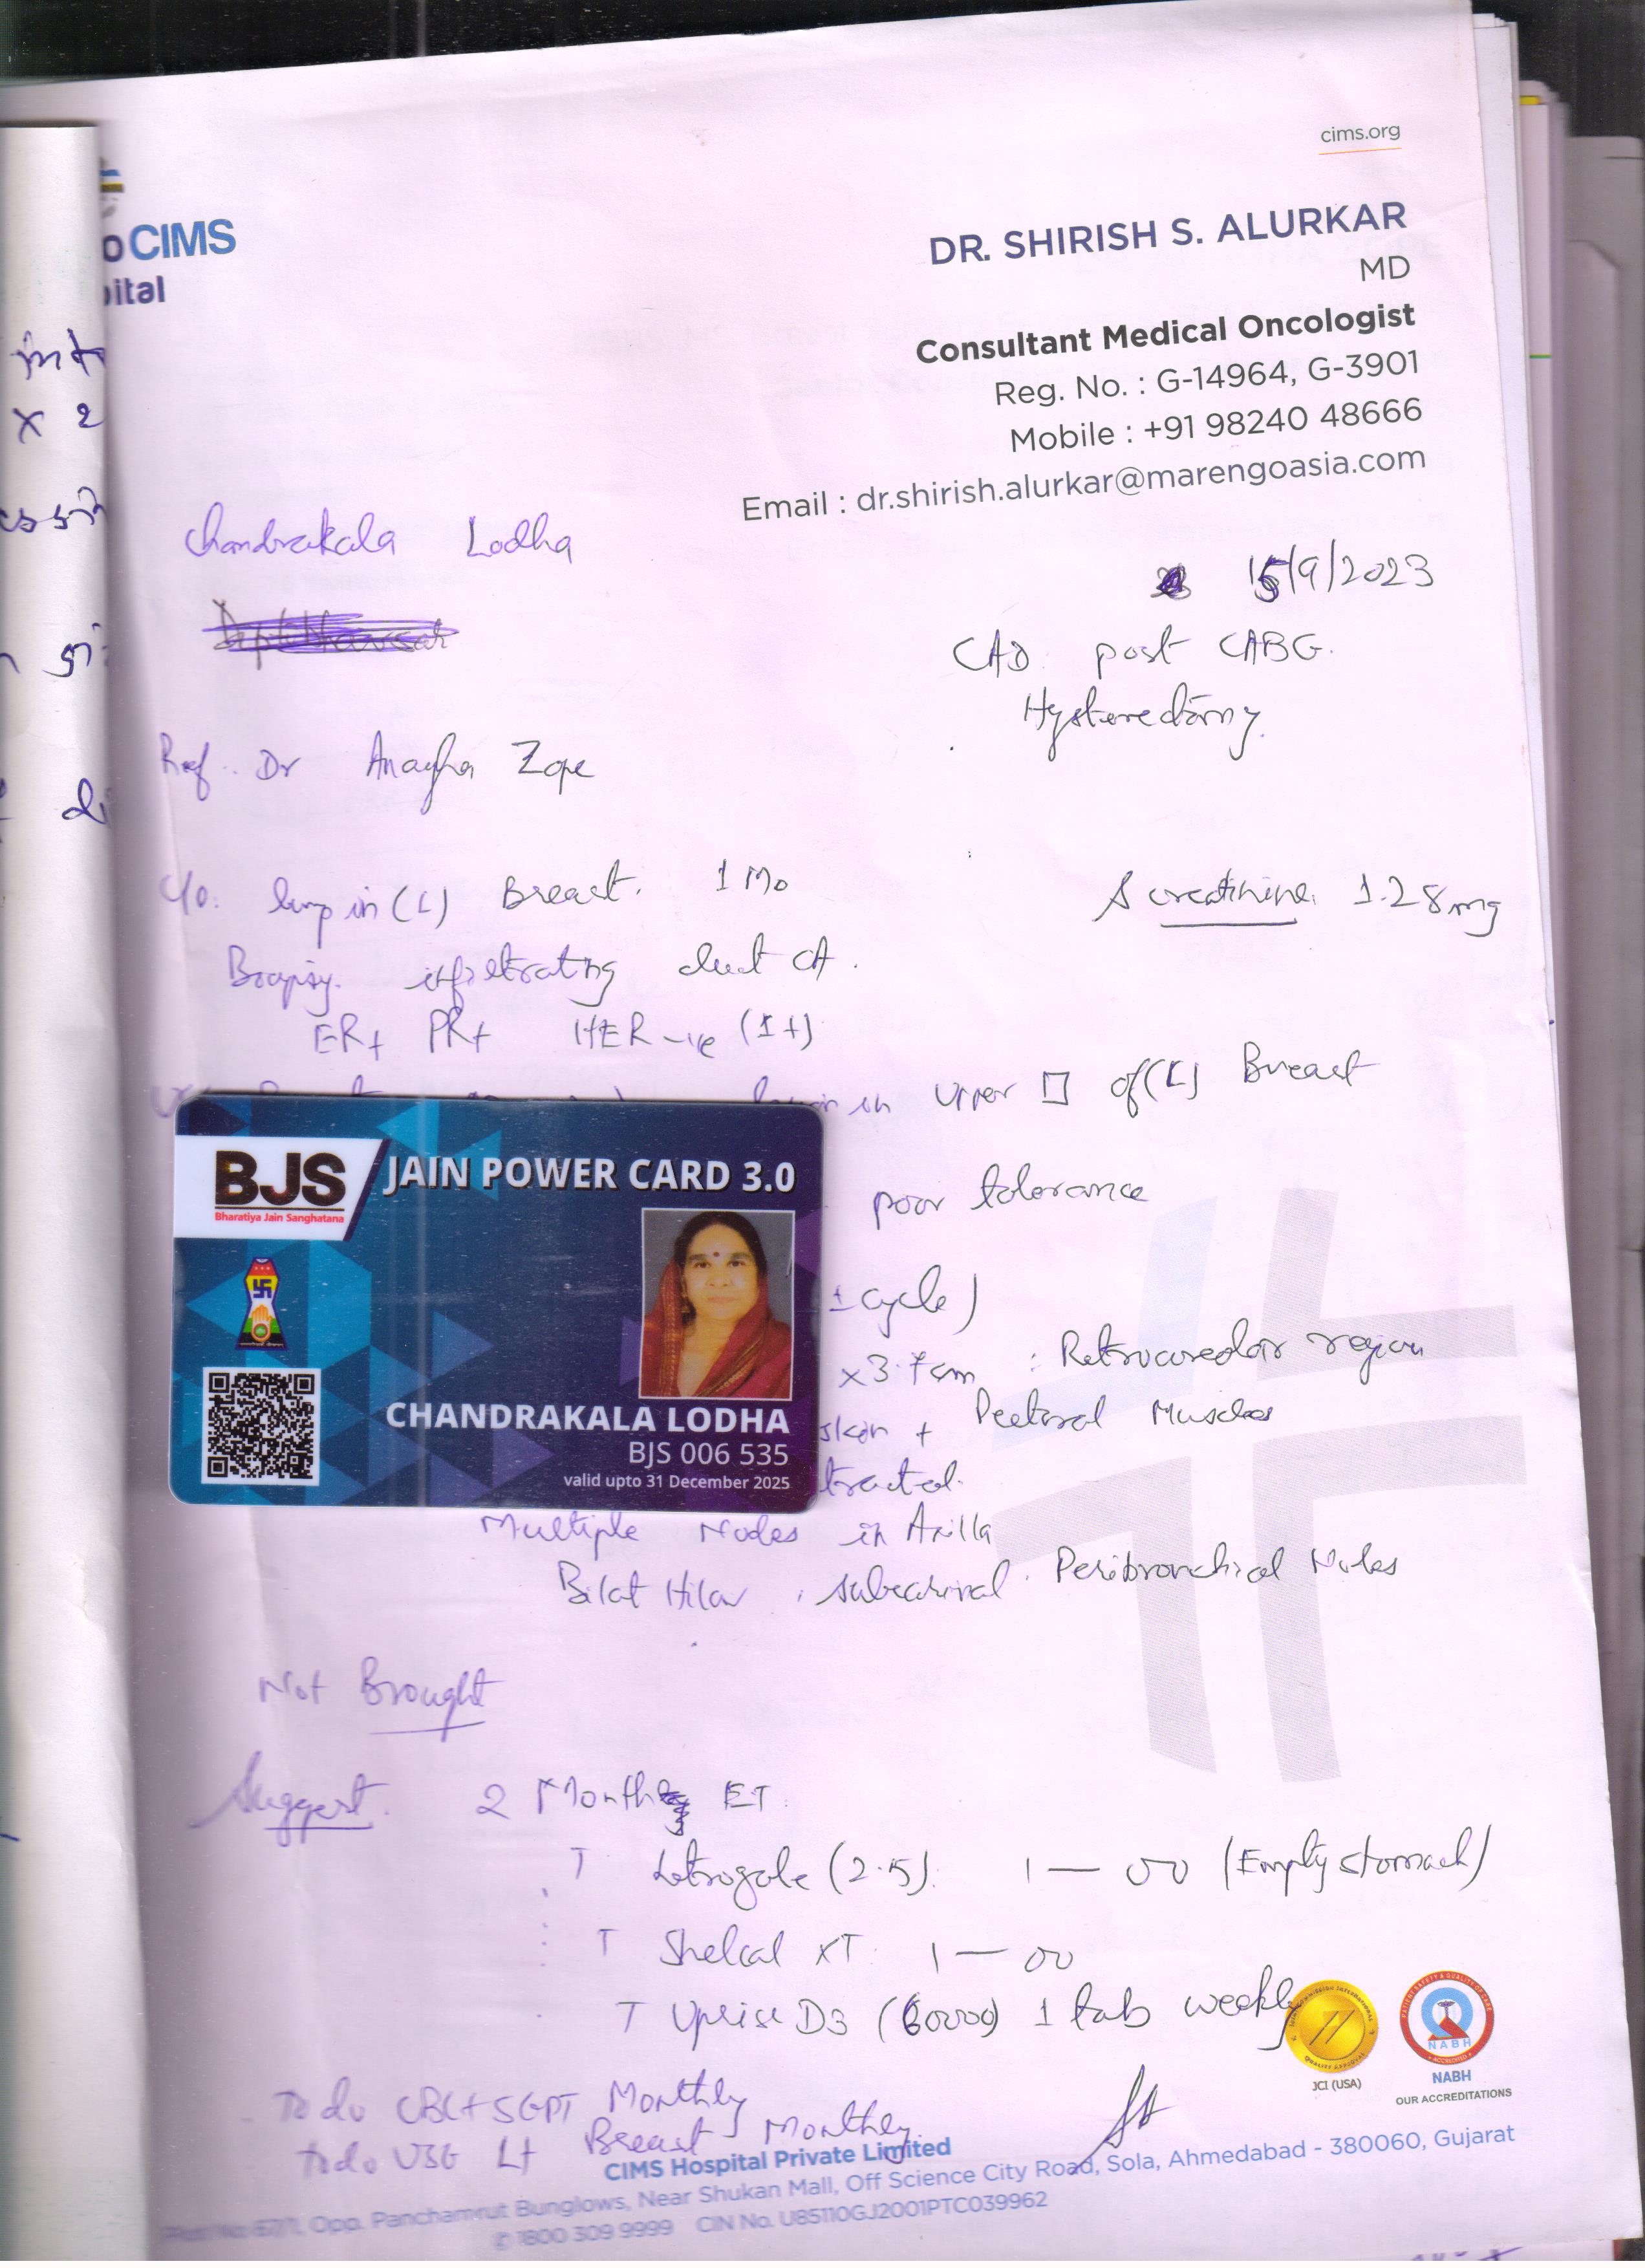 cims.org
CIMS
DR. SHIRISH S. ALURKAR
MD
Consultant Medical Oncologist
Reg. No. : G-14964, G-3901
Mobile : +91 98240 48666
Email : dr.shirish.alurkar@marengoasia.com
Chandrakala Lodha
15/9/2023
CAD post CABG.
Hysterectomy.
Ref. Dr Anagha Zope
C/o. lump in (L) Breast. 1 Mo
S creatinine 1.28 mg
Biopsy. infiltrating duct CA.
ER+ PR+ HER -ve (1+)
in upper of (L) Breast
poor tolerance
1 cycle)
x 3.7 cm : Retroareolar region
skin + Pectoral Muscles
Multiple Nodes in Axilla
Bilat Hilar, subcarinal. Peribronchial Nodes
BJS
Bharatiya Jain Sanghatana
JAIN POWER CARD 3.0
CHANDRAKALA LODHA
BJS 006 535
valid upto 31 December 2025
Not Brought
Suggest. 2 Month ET
T Letrozole (2.5). 1 — (Empty stomach)
T Shelcal XT. 1 —
T Uprise D3 (60000) 1 tab weekly
To do CBC + SGPT Monthly
To do USG Lt Breast Monthly.
JCI (USA)
NABH
NABH
OUR ACCREDITATIONS
CIMS Hospital Private Limited
Opp. Panchamrut Bunglows, Near Shukan Mall, Off Science City Road, Sola, Ahmedabad - 380060, Gujarat
1800 309 9999 CIN No. U85110GJ2001PTC039962